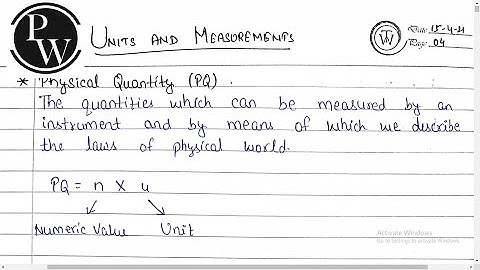 P
W
UNITS AND MEASUREMENTS
Date 15-4-21
Page 04
* Physical Quantity (PQ).
The quantities which can be measured by an
instrument and by means of which we describe
the laws of physical world.
PQ = n X u
Numeric Value Unit
Activate Windows
Go to Settings to activate Windows.